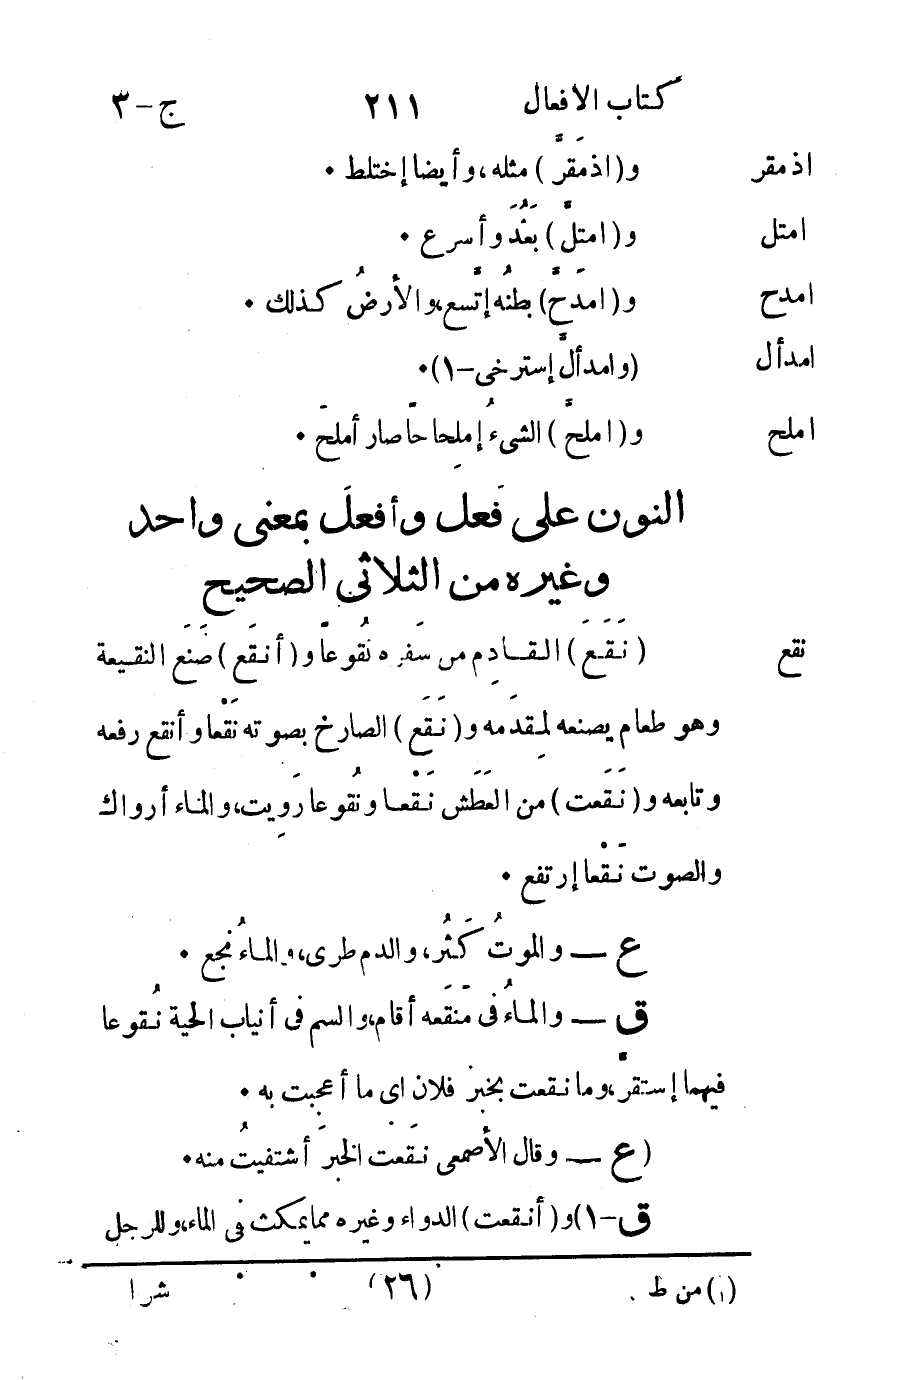 كتاب الافعال ٢١١ ج-٣
اذمقر و(اذمَقَرَّ) مثله، وأيضا إختلط.
امتل و(امتلَّ) بَعُدَ وأسرع.
امدح و(امدَّحَّ) بطنُه إتَّسع، والأرضُ كذلك.
امدأل (وامدألَّ إسترخى-١).
املح و(املحَّ) الشىءُ إملِحاحًا صار أملحَ.
النون على فَعل وأفعلَ بمعنى واحد
وغيره من الثلاثى الصحيح
نقع (نَقَعَ) القادِم من سَفَره نُقوعاً و(أنقَع) صَنَع النقيعة
وهو طعام يصنعه لِمقدَمه و(نَقَع) الصارخ بصوته نَقْعا وأنقع رفعه
وتابعه و(نَقَعت) من العَطَش نَقْعا ونُقوعا رَوِيت، والماء أرواك
والصوت نَقْعا إرتفع.
ع — والموتُ كَثُر، والدم طرى، والماءُ نجع.
ق — والماءُ فى مَنْقَعه أقام، والسم فى أنياب الحية نُقوعا
فيهما إستقرّ، وما نقعت بخبز فلان اى ما أعجبت به.
(ع — وقال الأصمعى نَقَعْت الخَبَر أشتفيتُ منه.
ق-١) و(أنقعت) الدواء وغيره مما يمكث فى الماء، وللرجل
(١) من ط. (٢٦) شرا